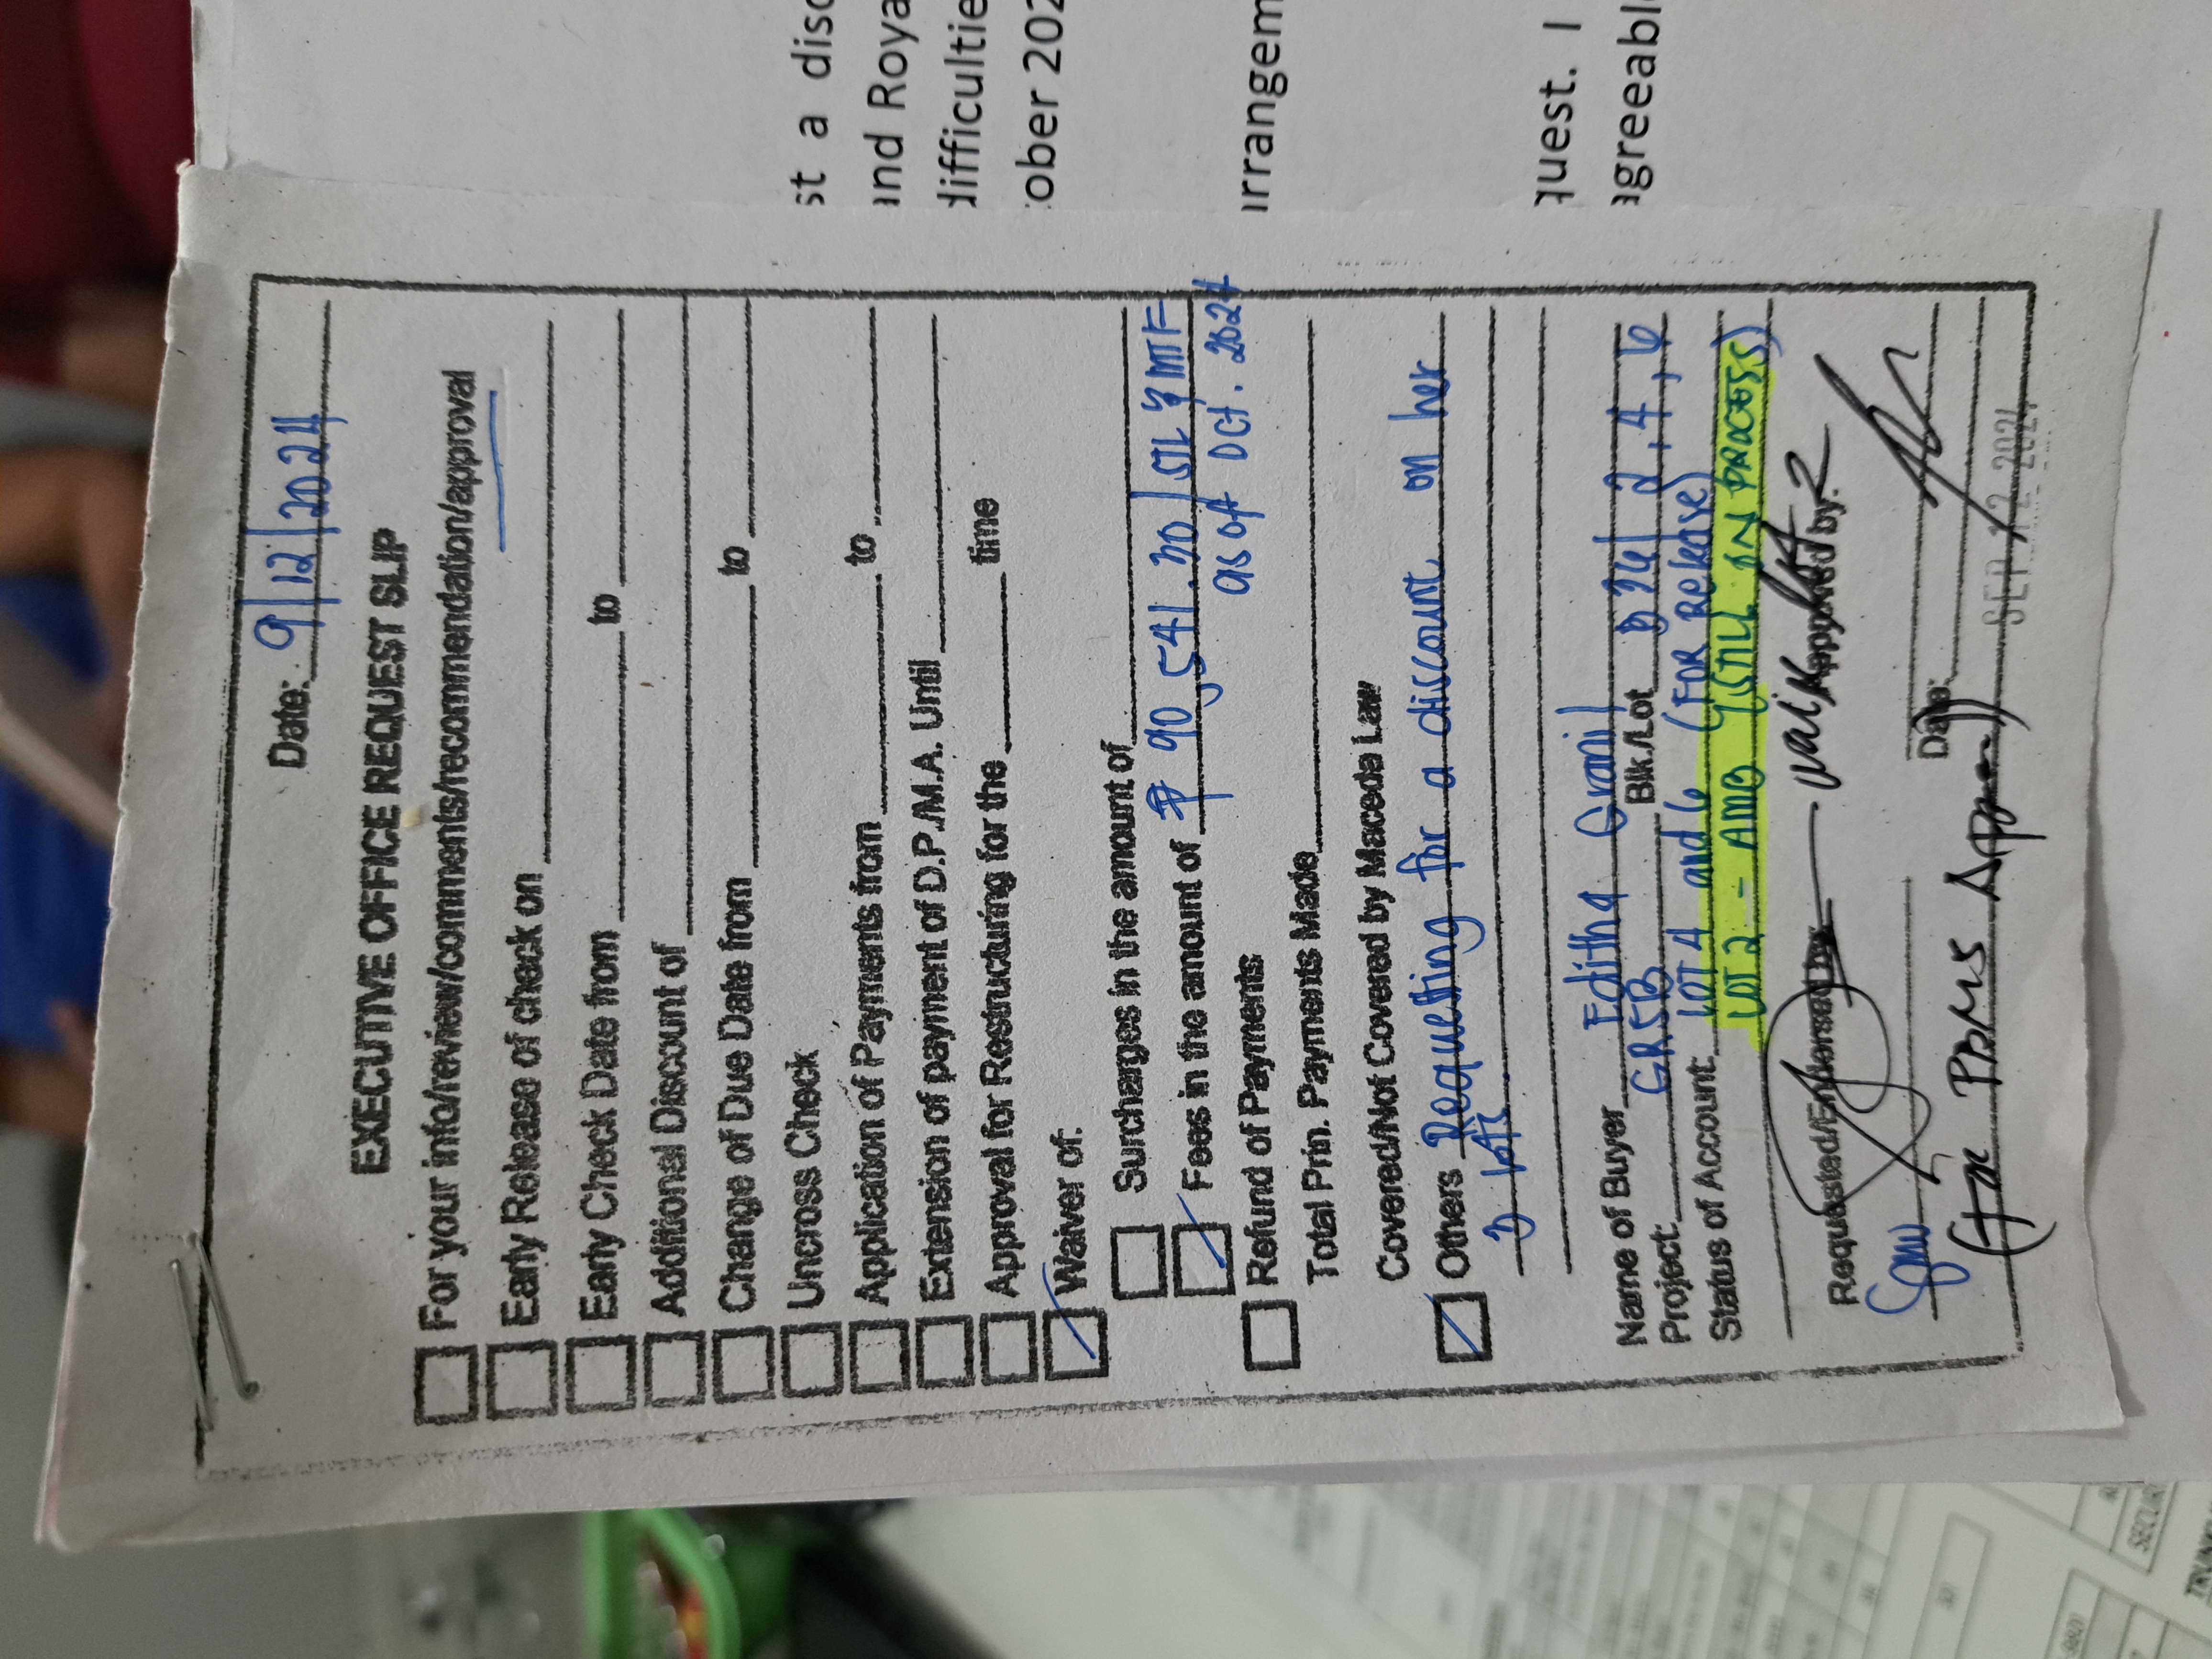 Date: 9/12/2024
EXECUTIVE OFFICE REQUEST SLIP
For your info/review/comments/recommendation/approval
Early Release of check on
Early Check Date from to
Additional Discount of
Change of Due Date from to
Uncross Check
Application of Payments from to
Extension of payment of D.P./M.A. Until
Approval for Restructuring for the time
Waiver of:
Surcharges in the amount of
Fees in the amount of ₱ 90,541.30 / STL & MTF
as of Oct. 2024
Refund of Payments
Total Prin. Payments Made
Covered/Not Covered by Maceda Law
Others Requesting for a discount on her
3 lots.
Name of Buyer Editha Granil
Project: GR5B Blk./Lot B26/ 2, 4, 6
Status of Account: LOT 4 and 6 (FOR Release)
LOT 2 - AMB (STILL IN PROCESS)
Requested/Endorsed by: lot 2 Approved by:
Date:
(for PBMS
SEP 12 2024
st a disc
and Roya
difficultie
ober 202
rrangem
quest. I
agreeabl
SECURI
TRUNK